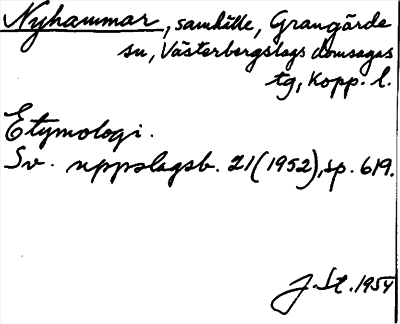 Nyhammar, samhälle, Grangärde
sn, Västerbergslags domsagas
tg, Kopp. l.
Etymologi.
Sv. uppslagsb. 21 (1952), sp. 619.
J. St. 1954